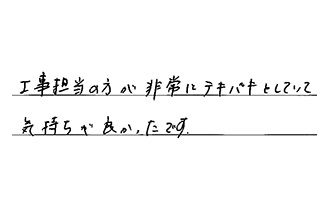 工事担当の方が非常にテキパキとしていて
気持ちが良かったです。